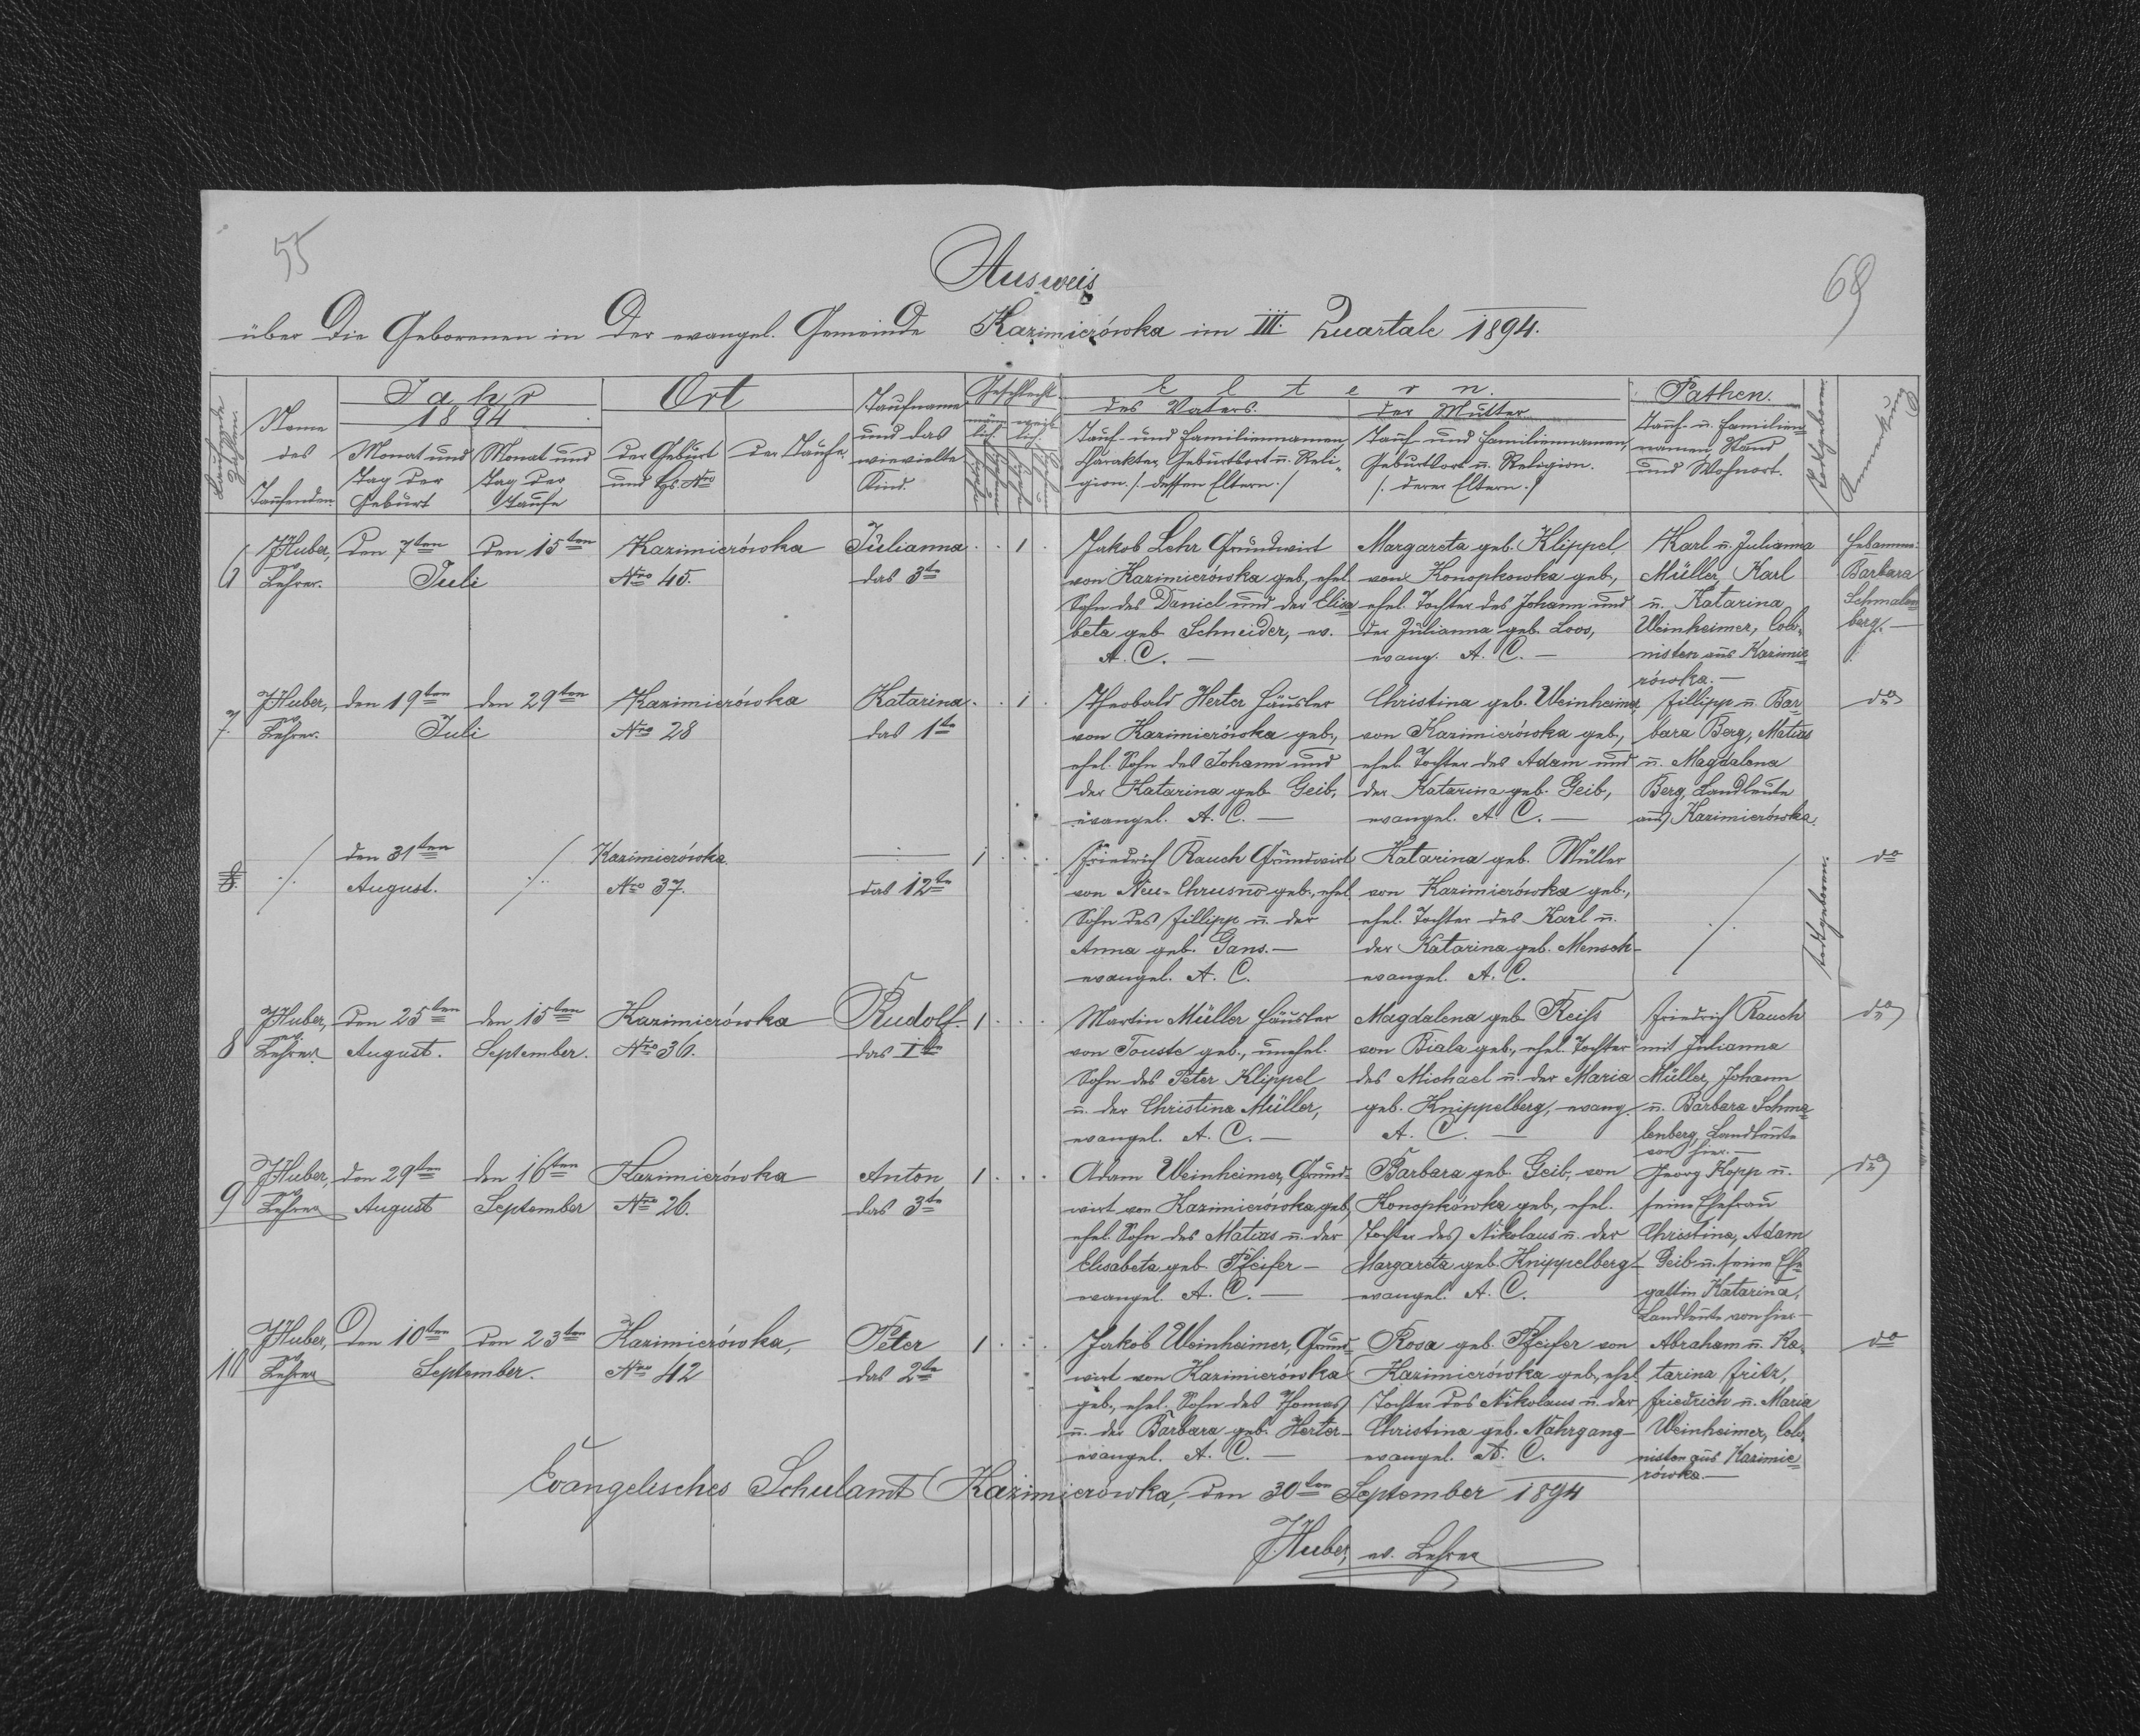 55
68
Ausweis
über die Geborenen in der evangel. Gemeinde Kazimierówka im III. Quartale 1894.
Laufende Zahlen.
Name
des
Taufenden.
Jahr
1894
Monat und
Tag der
Geburt
Monat und
Tag der
Taufe
Ort
der Geburt
und Hs. Nro
der Taufe.
Taufname
und das
wievielte
Kind.
Geschlecht
männ-
lich.
weib-
lich.
Eltern.
des Vaters.
Tauf- und Familiennamen,
Charakter, Geburtsort u. Reli-
gion. /. dessen Eltern ./
der Mutter
Tauf- und Familiennamen,
Geburtsort u. Religion.
/. deren Eltern ./
Pathen.
Tauf- u. Familien-
namen, Stand
und Wohnort.
Todtgeboren.
Anmerkung
6
JHuber,
ev.
Lehrer.
den 7ten
den 15ten
Juli
Kazimierówka
Nro 45.
Julianna
das 3te
1
Jakob Lehr Grundwirt
von Kazimierówska geb., ehel.
Sohn des Daniel und der Elisa-
beta geb. Schneider, ev.
A. C. —
Margareta geb. Klippel,
von Konopkowka geb.,
ehel. Tochter des Johann und
der Julianna geb. Loos,
evang. A. C. —
Karl u. Julianna
Müller, Karl
u. Katarina
Weinheimer, Colo-
nisten aus Kazimie-
rówka. —
Hebamme:
Barbara
Schmalen-
berg. —
7.
JHuber,
ev.
Lehrer.
den 19ten
den 29ten
Juli
Kazimierówka
Nro 28
Katarina
das 1te
1
Theobald Herter Häusler
von Kazimierówka geb.,
ehel. Sohn des Johann und
der Katarina geb. Geib,
evangel. A. C. —
Christina geb. Weinheimer,
von Kazimierówka geb.,
ehel. Tochter des Adam und
der Katarina geb. Geib,
evangel. A. C. —
Fillipp u. Bar-
bara Berg, Matias
u. Magdalena
Berg, Landleute
aus Kazimierówka.
do
8.
den 31ten
August.
Kazimierówka
Nro 37.
das 12te
1
Friedrich Rauch Grundwirt
von Neu-Chrusno geb., ehel.
Sohn des Fillipp u. der
Anna geb. Gans. —
evangel. A. C.
Katarina geb. Müller
von Kazimierówka geb.,
ehel. Tochter des Karl u.
der Katarina geb. Mensch —
evangel. A. C.
todtgeboren.
do
8
JHuber,
ev.
Lehrer
den 25ten
August.
den 15ten
September.
Kazimierówka
Nro 36.
Rudolf.
das 1te
1
Martin Müller Häusler
von Touste geb., unehel.
Sohn des Peter Klippel
u. der Christina Müller,
evangel. A. C. —
Magdalena geb. Reiss
von Biala geb., ehel. Tochter
des Michael u. der Maria
geb. Knippelberg, evang.
A. C. —
Friedrich Rauch
mit Julianna
Müller, Johann
u. Barbara Schma-
lenberg, Landleute
von hier. —
do
9
JHuber,
ev.
Lehrer
den 29ten
August
den 16ten
September
Kazimierówka
Nro 26.
Anton
das 3te
1
Adam Weinheimer, Grund-
wirt von Kazimierówka geb.,
ehel. Sohn des Matias u. der
Elisabeta geb. Pfeifer —
evangel. A. C. —
Barbara geb. Geib, von
Konopkówka geb., ehel.
Tochter des Nikolaus u. der
Margareta geb. Knippelberg —
evangel. A. C.
Georg Kopp u.
seine Ehefrau
Christina, Adam
Geib u. seine Ehe-
gattin Katarina,
Landleute von hier —
do
10
JHuber,
ev.
Lehrer
Den 10ten
den 23ten
September.
Kazimierówka,
Nro 42
Peter
das 2te
1
Jakob Weinheimer, Grund-
wirt von Kazimierówka
geb., ehel. Sohn des Thomas
u. der Barbara geb. Herter —
evangel. A. C. —
Rosa geb. Pfeifer von
Kazimierówka geb., ehel.
Tochter des Nikolaus u. der
Christina geb. Nahrgang —
evangel. A. C.
Abraham u. Ka-
tarina Fritz,
Friedrich u. Maria
Weinheimer, Colo-
nisten aus Kazimie-
rówka. —
do
Evangelisches Schulamt Kazimierowka, den 30ten September 1894
JHuber, ev. Lehrer